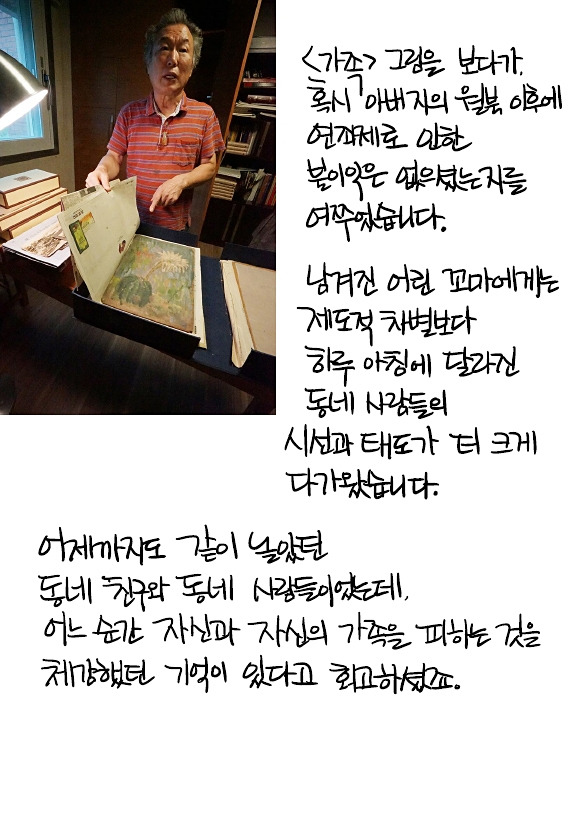 <가족> 그림을 보다가,
혹시 아버지의 월북 이후에
연좌제로 인한
불이익은 없으셨는지를
여쭈었습니다.
남겨진 어린 꼬마에게는
제도적 차별보다
하루 아침에 달라진
동네 사람들의
시선과 태도가 더 크게
다가왔습니다.
어제까지도 같이 놀았던
동네 친구와 동네 사람들이었는데,
어느 순간 자신과 자신의 가족을 피하는 것을
체감했던 기억이 있다고 회고하셨죠.